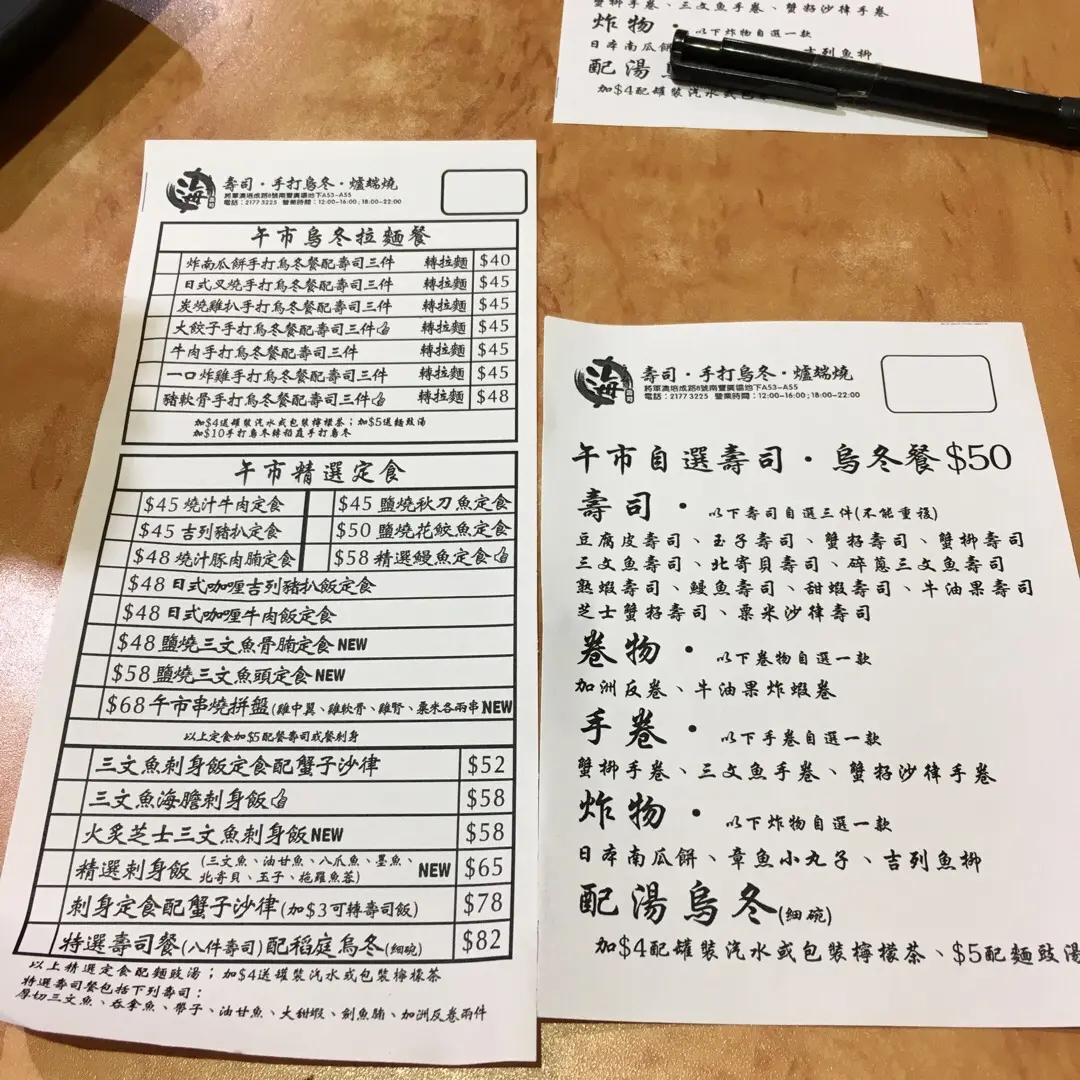 蟹柳手卷、三文魚手卷、蟹籽沙律手卷
炸物·以下炸物自選一款
日本南瓜餅 吉列魚柳
配湯
加$4配罐裝汽水或包裝
海
壽司·手打烏冬·爐端燒
將軍澳培成路8號南豐廣場地下A53-A55
電話:2177 3225 營業時間:12:00-16:00;18:00-22:00
午市烏冬拉麵餐
炸南瓜餅手打烏冬餐配壽司三件 轉拉麵 $40
日式叉燒手打烏冬餐配壽司三件 轉拉麵 $45
炭燒雞扒手打烏冬餐配壽司三件 轉拉麵 $45
大餃子手打烏冬餐配壽司三件 轉拉麵 $45
牛肉手打烏冬餐配壽司三件 轉拉麵 $45
一口炸雞手打烏冬餐配壽司三件 轉拉麵 $45
豬軟骨手打烏冬餐配壽司三件 轉拉麵 $48
加$4送罐裝汽水或包裝檸檬茶;加$5送麵豉湯
加$10手打烏冬轉稻庭手打烏冬
午市精選定食
$45 燒汁牛肉定食 $45 鹽燒秋刀魚定食
$45 吉列豬扒定食 $50 鹽燒花鮫魚定食
$48 燒汁豚肉腩定食 $58 精選鰻魚定食
$48 日式咖喱吉列豬扒飯定食
$48 日式咖喱牛肉飯定食
$48 鹽燒三文魚骨腩定食 NEW
$58 鹽燒三文魚頭定食 NEW
$68 午市串燒拼盤(雞中翼、雞軟骨、雞腎、粟米各兩串 NEW
以上定食加$5配餐壽司或餐刺身
三文魚刺身飯定食配蟹子沙律 $52
三文魚海膽刺身飯 $58
火炙芝士三文魚刺身飯 NEW $58
精選刺身飯(三文魚、油甘魚、八爪魚、墨魚、北寄貝、玉子、拖羅魚蓉) NEW $65
刺身定食配蟹子沙律(加$3可轉壽司飯) $78
特選壽司餐(八件壽司)配稻庭烏冬(細碗) $82
以上精選定食配麵豉湯;加$4送罐裝汽水或包裝檸檬茶
特選壽司餐包括下列壽司:
厚切三文魚、吞拿魚、帶子、油甘魚、大甜蝦、劍魚腩、加洲反卷兩件
海
壽司·手打烏冬·爐端燒
將軍澳培成路8號南豐廣場地下A53-A55
電話:2177 3225 營業時間:12:00-16:00;18:00-22:00
午市自選壽司·烏冬餐 $50
壽司·以下壽司自選三件(不能重複)
豆腐皮壽司、玉子壽司、蟹籽壽司、蟹柳壽司
三文魚壽司、北寄貝壽司、碎蔥三文魚壽司
熟蝦壽司、鰻魚壽司、甜蝦壽司、牛油果壽司
芝士蟹籽壽司、粟米沙律壽司
卷物·以下卷物自選一款
加洲反卷、牛油果炸蝦卷
手卷·以下手卷自選一款
蟹柳手卷、三文魚手卷、蟹籽沙律手卷
炸物·以下炸物自選一款
日本南瓜餅、章魚小丸子、吉列魚柳
配湯烏冬(細碗)
加$4配罐裝汽水或包裝檸檬茶、$5配麵豉湯